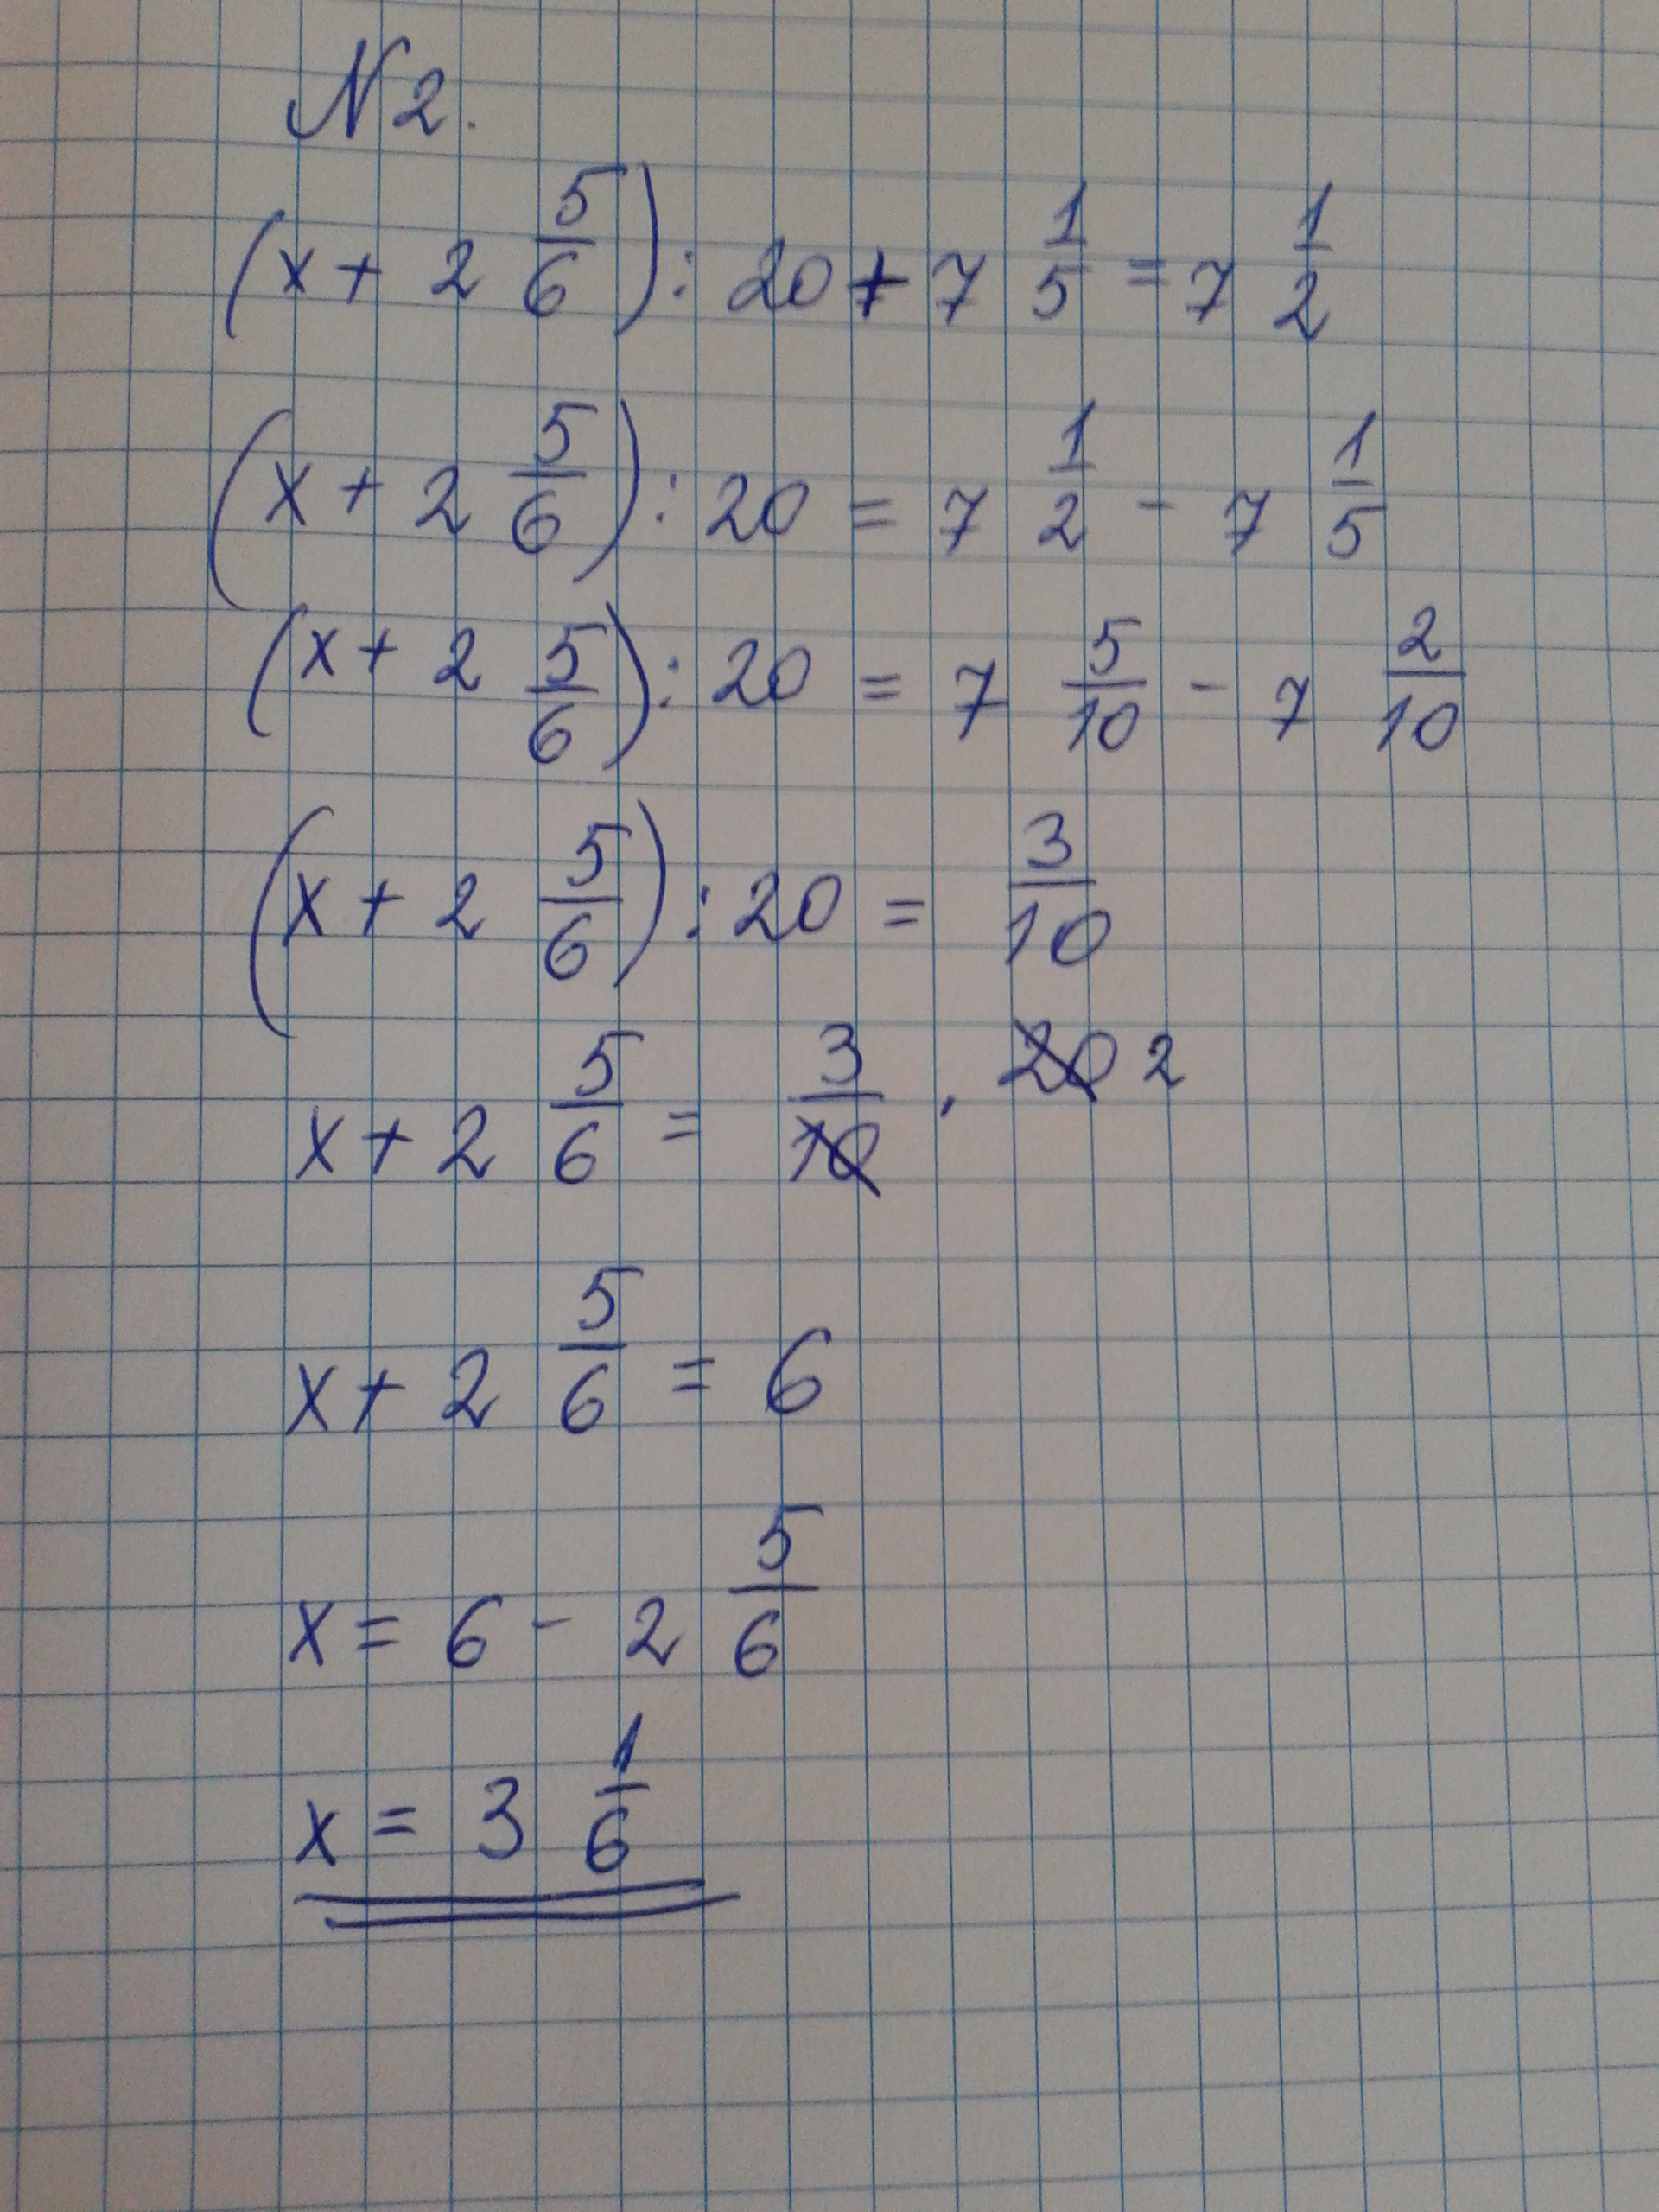 N 2.
(x + 2 5/6) : 20 + 7 1/5 = 7 1/2
(x + 2 5/6) : 20 = 7 1/2 - 7 1/5
(x + 2 5/6) : 20 = 7 5/10 - 7 2/10
(x + 2 5/6) : 20 = 3/10
x + 2 5/6 = 3/10 · 20 2
x + 2 5/6 = 6
x = 6 - 2 5/6
x = 3 1/6